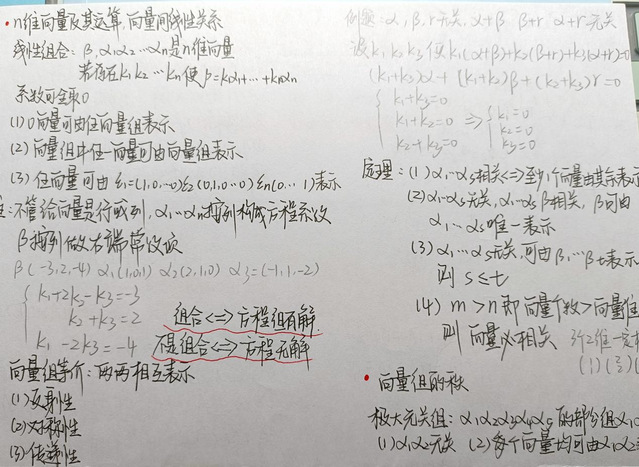 • n维向量及其运算,向量间线性关系
线性组合: β, α₁α₂ ⋯αn是n维向量
若存在k₁ k₂ ⋯ kn使 β=k₁α₁+⋯+knαn
系数可全取0
(1) 0向量可由任向量组表示
(2) 向量组中任一向量可由向量组表示
(3) 任向量可由 ε₁=(1,0,⋯0) ε₂(0,1,0⋯0) εn(0⋯ 1)表示
注:不管给向量是行或列, α₁⋯αn按列构成方程系数
β按列做右端常数项
β(-3,2,-4) α₁(1,0,1) α₂(2,1,0) α₃=(-1,1,-2)
k₁+2k₂-k₃=-3
k₂+k₃=2
k₁ -2k₃=-4
组合<=>方程组有解
不是组合<=>方程无解
向量组等价:两两相互表示
(1)反射性
(2)对称性
(3)传递性
例题: α,β,r无关, α+β β+r α+r无关
设k₁ k₂ k₃ 使k₁(α+β)+k₂(β+r)+k₃(α+r)=0
(k₁+k₃)α+(k₁+k₂)β+(k₂+k₃)r=0
k₁+k₃=0
k₁+k₂=0
k₂+k₃=0
=>
k₁=0
k₂=0
k₃=0
定理: (1) α₁⋯αs相关<=>至少1个向量由其余表示
(2)α₁⋯αs无关, α₁⋯αs β相关, β可由
α₁⋯αs唯一表示
(3) α₁⋯αs无关,可由β₁⋯βt表示
则 s≤t
(4) m>n 即向量个数>向量维
则 向量必相关 3个2维一定
• 向量组的秩
极大无关组: α₁α₂α₃α₄α₅ 的部分组α₁α
(1)α₁α₂无关 (2)每个向量均可由α₁α₂